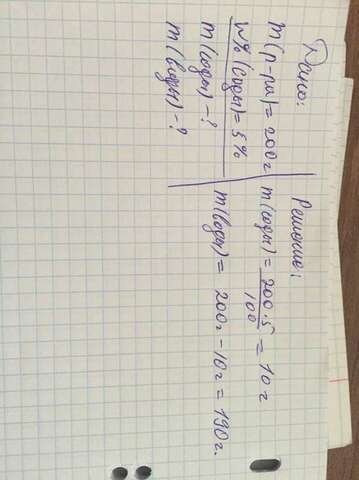 Дано:
m(р-ра)=200г
W% (соды)=5%
m(соды)-?
m(воды)-?
Решение:
m(соды)= 200·5/100 = 10г
m(воды)= 200г-10г=190г.